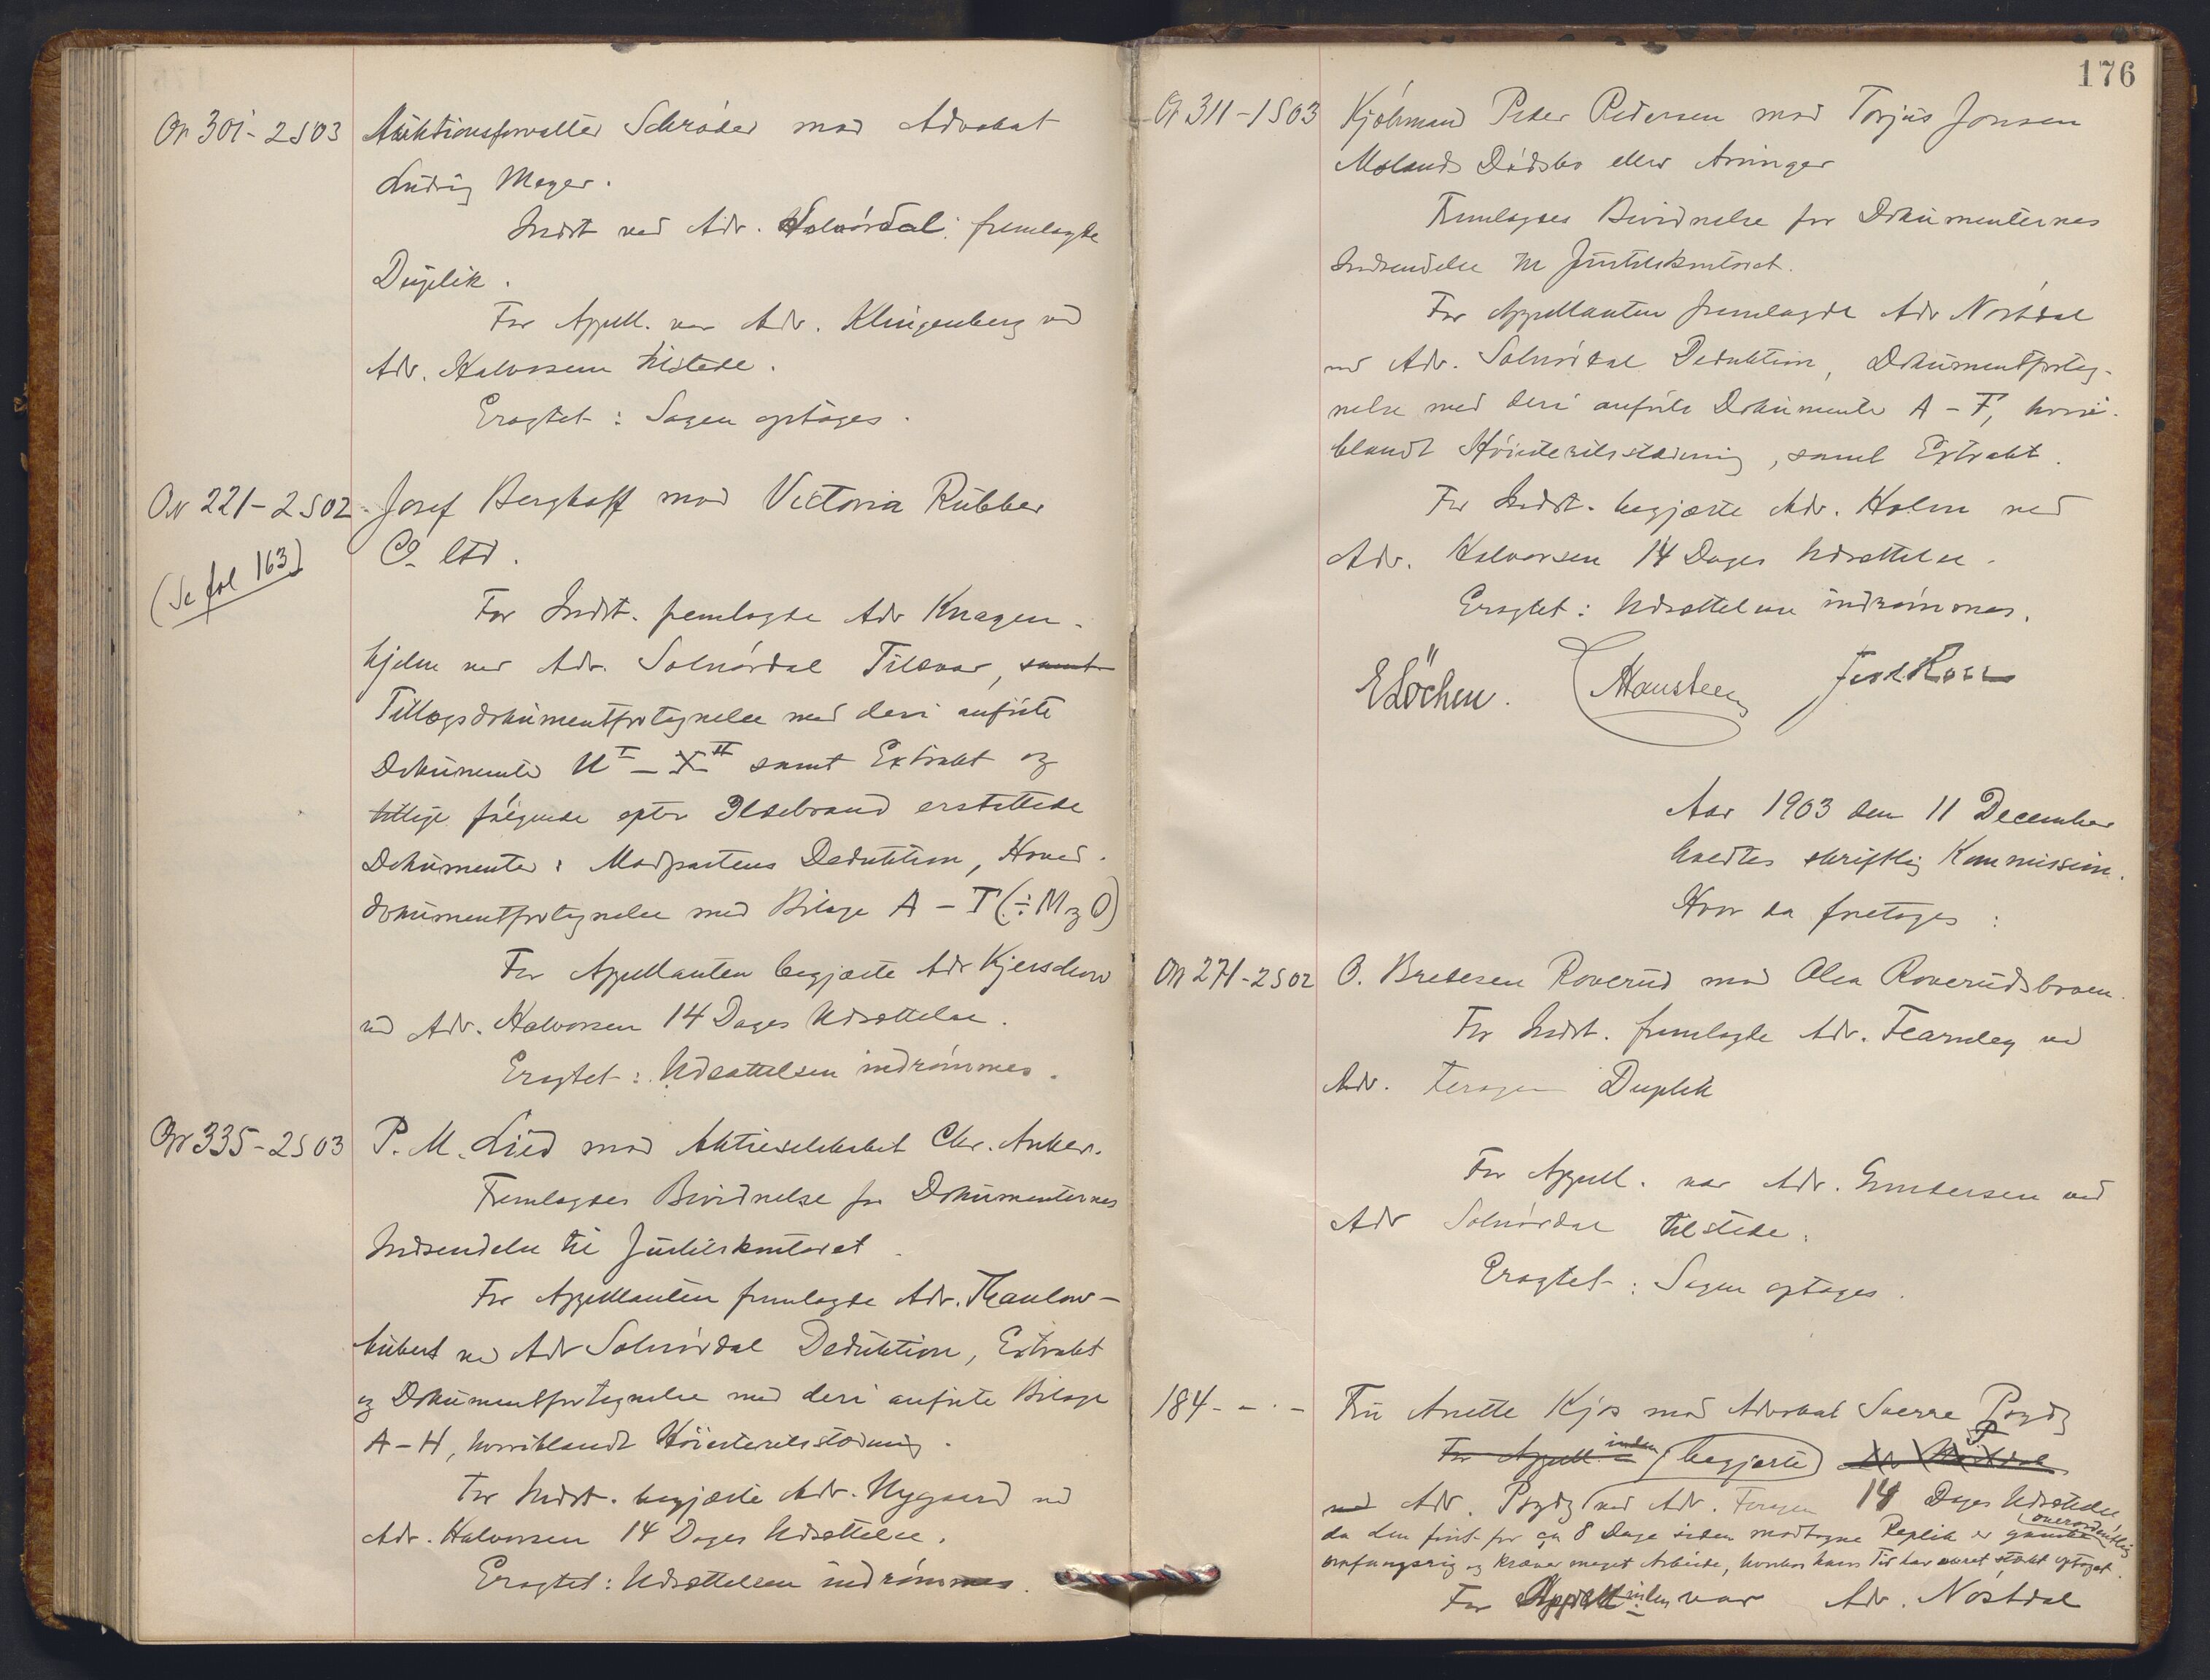 Or 301-2S03 Auktionsforvalter Schrøder mod Advokat
Ludvig Meyer.
Indst ved Adv. Solnørdal: fremlagde
Duplik.
For Appell. var Adv. Klingenberg ved
Adv. Halvorsen tilstede.
Eragtet: Sagen optages.
Or 221-2S02 Josef Berghoff mod Victoria Rubber
Co ltd.
(Se fol 163)
For Indst. fremlagde Adv Knagen-
hjelm ved Adv. Solnørdal Tilsvar, samt
Tillægsdokumentfortegnelse med deri anførte
Dokumenter U I – X II samt Extrakt og
tillige følgende efter Ildebrand erstattede
Dokumenter: Modpartens Deduktion, Hoved-
dokumentfortegnelse med Bilage A – T (÷ M og O)
For Appellanten begjærte Adv Kjerschow
ved Adv. Halvorsen 14 Dages Udsættelse.
Eragtet: Udsættelsen indrømmes.
Or 335-2S03 P. M. Lied mod Aktieselskabet Chr. Anker.
Fremlagdes Bevidnelse for Dokumenternes
Indsendelse til Justitskontoret.
For Appellanten fremlagde Adv. Thaulow-
hubert ved Adv Solnørdal Deduktion, Extrakt
og Dokumentfortegnelse med deri anførte Bilage
A – H, hvoriblandt Høiesteretsstævning.
For Indst. begjærte Adv. Nygaard ved
Adv. Halvorsen 14 Dages Udsættelse.
Eragtet: Udsættelsen indrømmes.
176
Or 311-1S03 Kjøbmand Peder Pedersen mod Torjus Jonsen
Molands Dødsbo eller Arvinger
Fremlagdes Bevidnelse for Dokumenternes
Indsendelse til Justitskontoret.
For Appellanten fremlagde Adv Nørdal
ved Adv. Solnørdal Deduktion, Dokumentforteg-
nelse med deri anførte Dokumenter A – F, hvori-
blandt Høiesteretsstævning, samt Extrakt.
For Indst. begjærte Adv. Holm ved
Adv. Halvorsen 14 Dages Udsættelse.
Eragtet: Udsættelsen indrømmes.
E Löchen. Hansteen
Aar 1903 den 11 December
holdtes skriftlig Kommission.
Hvor da foretoges:
Or 271-2S02 O. Bredesen Roverud mod Olea Roverudsbraen.
For Indst. fremlagde Adv. Fearnley ved
Adv. Duplik
For Appell. var Adv. Gundersen ved
Adv Solnørdal tilstede.
Eragtet: Sagen optages.
184 - - . - Fru Anette Kjos mod Advokat Sverre
For Appell inden begjærte
ved Adv. ved Adv. 14 Dages Udsættelse
da den først for ca 8 Dage siden modtagne Replik er ganske overordentlig
omfangsrig og kræver meget Arbeide, hvorhos hans Tid har været stærkt optaget.
For Appellinden var Adv. Nørdal